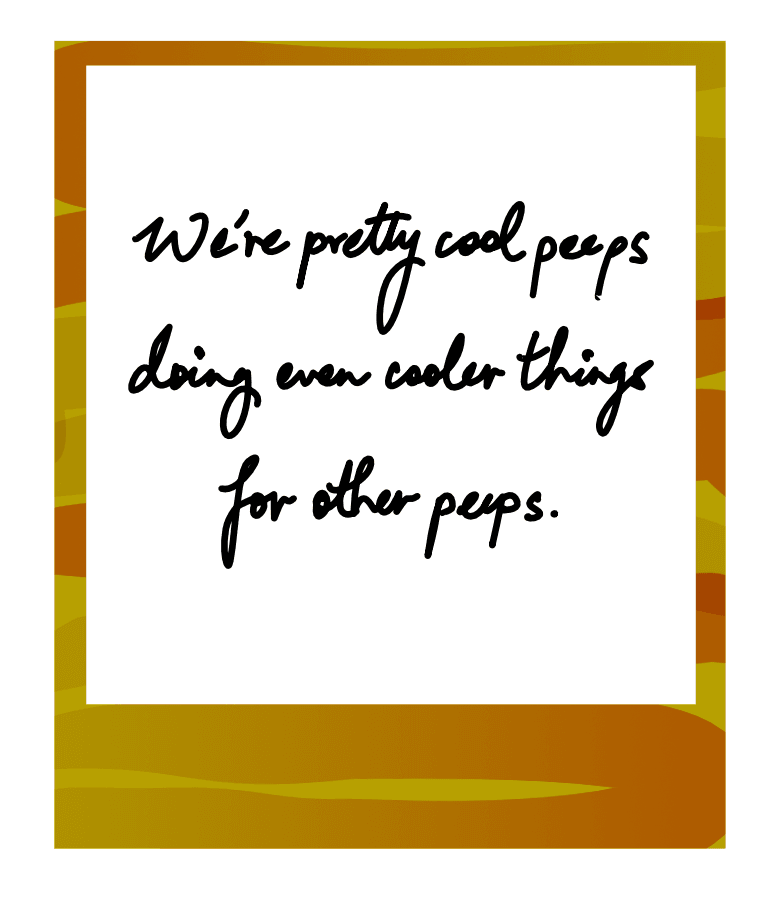 We're pretty cool peeps
doing even cooler things
for other peeps.